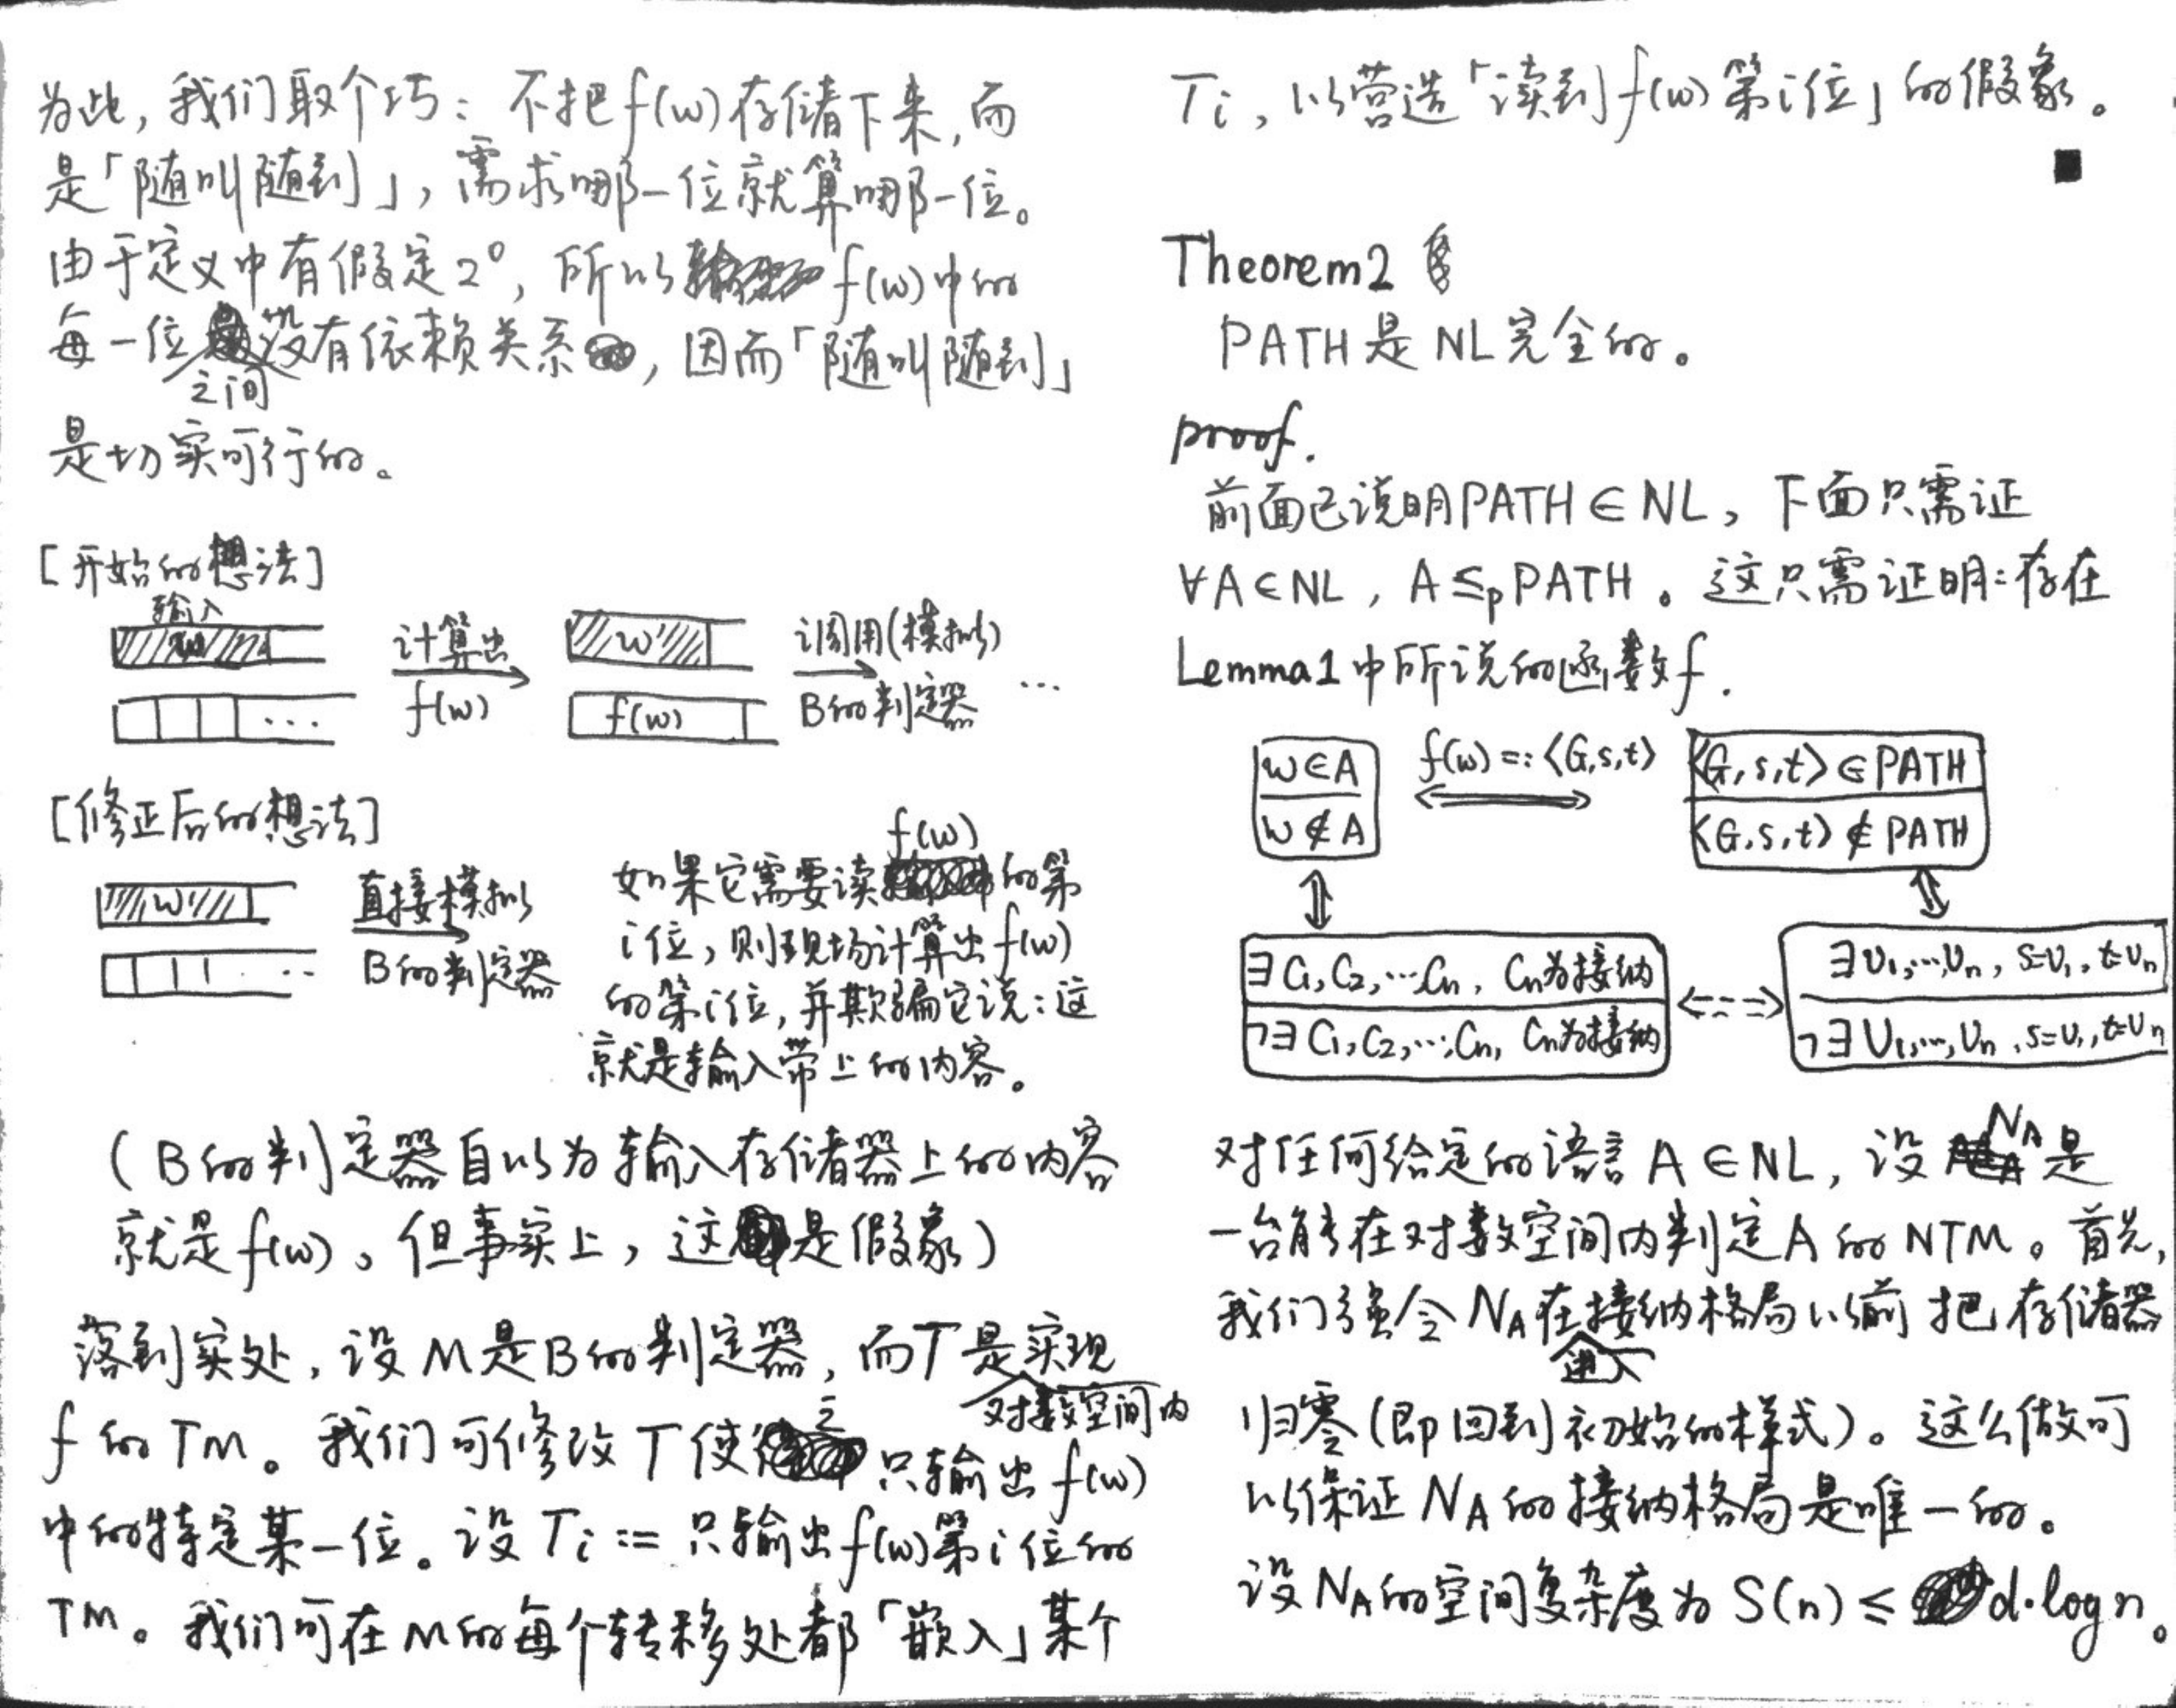 为此，我们取个巧：不把f(w)存储下来，而
是「随叫随到」，需求哪一位就算哪一位。
由于定义中有假定2°，所以f(w)中的
每一位之间没有依赖关系，因而「随叫随到」
是切实可行的。
[开始的想法]
输入
w
计算出
f(w)
w
f(w)
调用(模拟)
B的判定器
...
[修正后的想法]
w
直接模拟
B的判定器
如果它需要读f(w)的第
i位，则现场计算出f(w)
的第i位，并欺骗它说：这
就是输入带上的内容。
(B的判定器自以为输入存储器上的内容
就是f(w)，但事实上，这是假象)
落到实处，设M是B的判定器，而T是对数空间内实现
f的TM。我们可修改T使之只输出f(w)
中的特定某一位。设Ti := 只输出f(w)第i位的
TM。我们可在M的每个转移处都「嵌入」某个
Ti，以营造「读到f(w)第i位」的假象。
■
Theorem2
PATH是NL完全的。
proof.
前面已说明PATH∈NL，下面只需证
∀A∈NL，A≤pPATH。这只需证明：存在
Lemma1中所说的函数f.
w∈A
w∉A
f(w)=:⟨G,s,t⟩
⟨G,s,t⟩∈PATH
⟨G,s,t⟩∉PATH
∃C₁,C₂,…,Cn, Cn为接纳
¬∃C₁,C₂,…,Cn, Cn为接纳
∃U₁,…,Un, s=U₁, t=Un
¬∃U₁,…,Un, s=U₁, t=Un
对任何给定的语言A∈NL，设NA是
一台能在对数空间内判定A的NTM。首先，
我们强令NA在进入接纳格局以前把存储器
归零(即回到初始的样式)。这么做可
以保证NA的接纳格局是唯一的。
设NA的空间复杂度为S(n)≤d·logn。